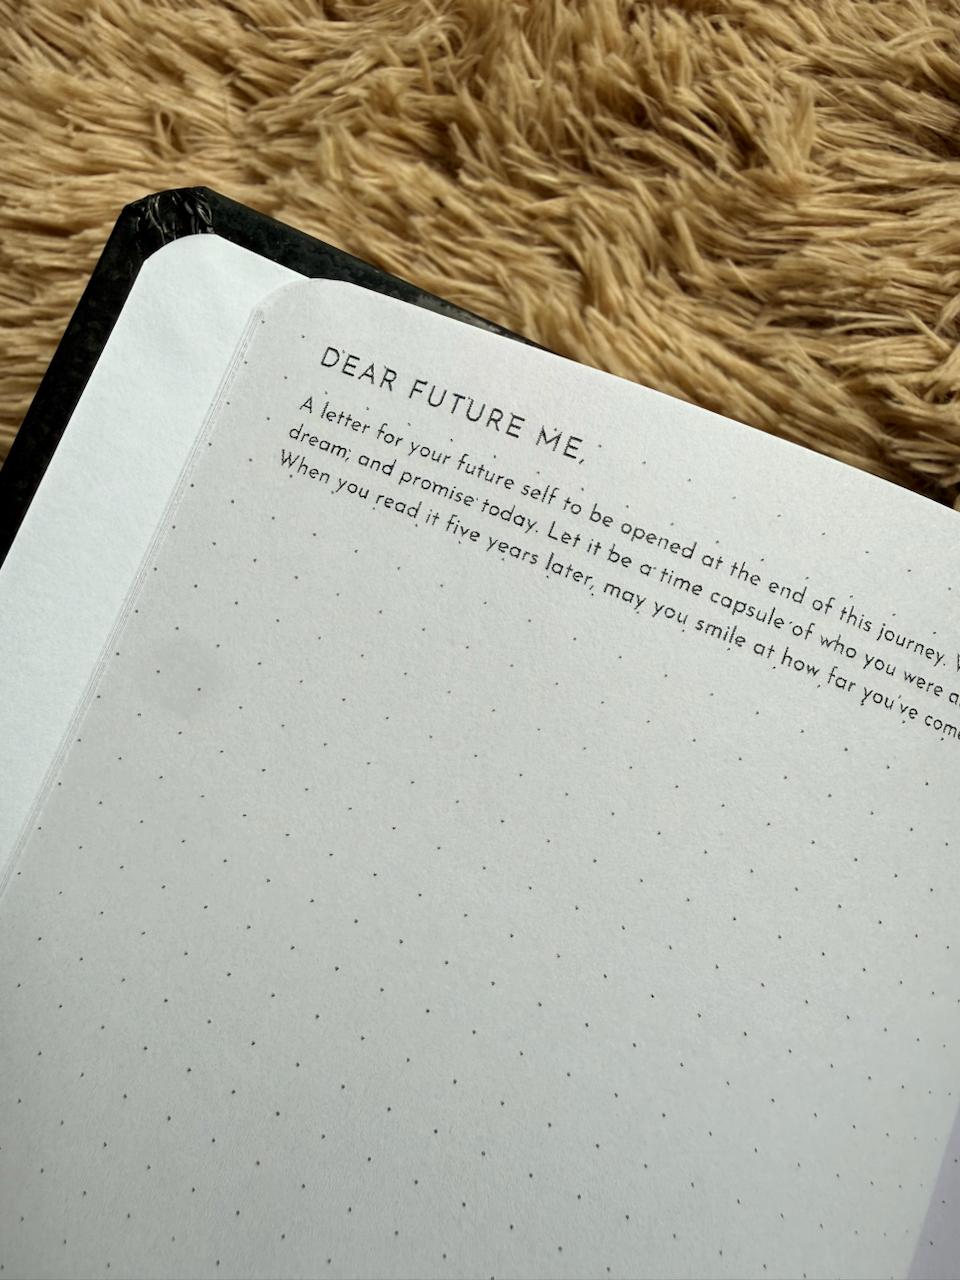 DEAR FUTURE ME,
A letter for your future self to be opened at the end of this journey.
dream, and promise today. Let it be a time capsule of who you were
When you read it five years later, may you smile at how far you've come